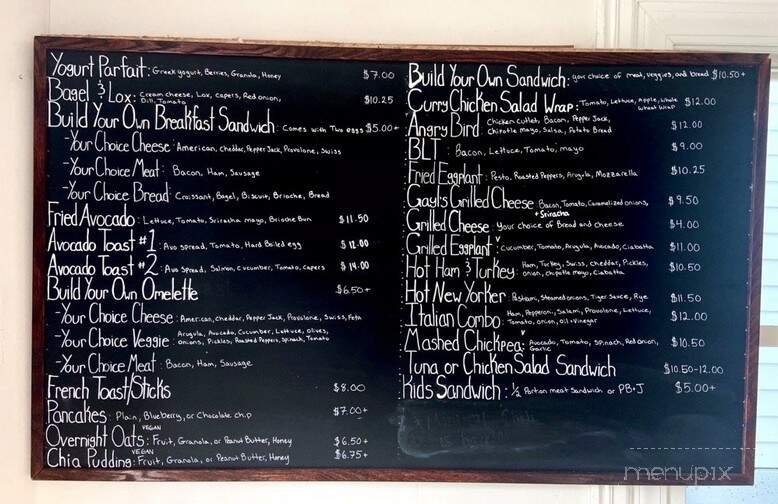 Yogurt Parfait: Greek yogurt, Berries, Granola, Honey $7.00
Bagel & Lox: Cream cheese, Lox, capers, Red onion, $10.25
Dill, Tomato
Build Your Own Breakfast Sandwich: Comes with Two eggs $5.00+
-Your Choice Cheese: American, cheddar, Pepper Jack, Provolone, Swiss
-Your Choice Meat: Bacon, Ham, Sausage
-Your Choice Bread: Croissant, Bagel, Biscuit, Brioche, Bread
Fried Avocado: Lettuce, Tomato, Sriracha mayo, Brioche Bun $11.50
Avocado Toast #1: Avo spread, Tomato, Hard Boiled egg $12.00
Avocado Toast #2: Avo spread, Salmon, cucumber, Tomato, Capers $14.00
Build Your Own Omelette $6.50+
-Your Choice Cheese: American, cheddar, Pepper Jack, Provolone, Swiss, Feta
-Your Choice Veggie: Arugula, Avocado, Cucumber, Lettuce, olives,
onions, Pickles, Roasted Peppers, Spinach, Tomato
-Your Choice Meat: Bacon, Ham, Sausage
French Toast/Sticks $8.00
Pancakes: Plain, Blueberry, or Chocolate chip $7.00+
VEGAN
Overnight Oats: Fruit, Granola, or Peanut Butter, Honey $6.50+
VEGAN
Chia Pudding: Fruit, Granola, or Peanut Butter, Honey $6.75+
Build Your Own Sandwich: your choice of meat, veggies, and bread $10.50+
Curry Chicken Salad Wrap: Tomato, Lettuce, Apple, Whole $12.00
Wheat Wrap
Angry Bird: Chicken cutlet, Bacon, Pepper Jack, $12.00
Chipotle mayo, Salsa, Potato Bread
BLT: Bacon, Lettuce, Tomato, mayo $9.00
Fried Eggplant: Pesto, Roasted Peppers, Arugula, Mozzarella $10.25
Gayl's Grilled Cheese Bacon, Tomato, Caramelized onions, $9.50
+Sriracha
Grilled Cheese: Your choice of Bread and cheese $4.00
V
Grilled Eggplant: Cucumber, Tomato, Arugula, Avocado, Ciabatta $11.00
Hot Ham & Turkey: Ham, Turkey, Swiss, cheddar, Pickles, $10.50
onion, chipotle mayo, Ciabatta
Hot New Yorker: Pastrami, Steamed onions, Tiger Sauce, Rye $11.50
Italian Combo: Ham, Pepperoni, Salami, Provolone, Lettuce, $12.00
Tomato, onion, oil+vinegar
V
Mashed Chickpea: Avocado, Tomato, Spinach, Red onion, $10.50
Garlic
Tuna or Chicken Salad Sandwich $10.50-12.00
Kids Sandwich: ½ Portion meat Sandwich or PB+J $5.00+
menupix